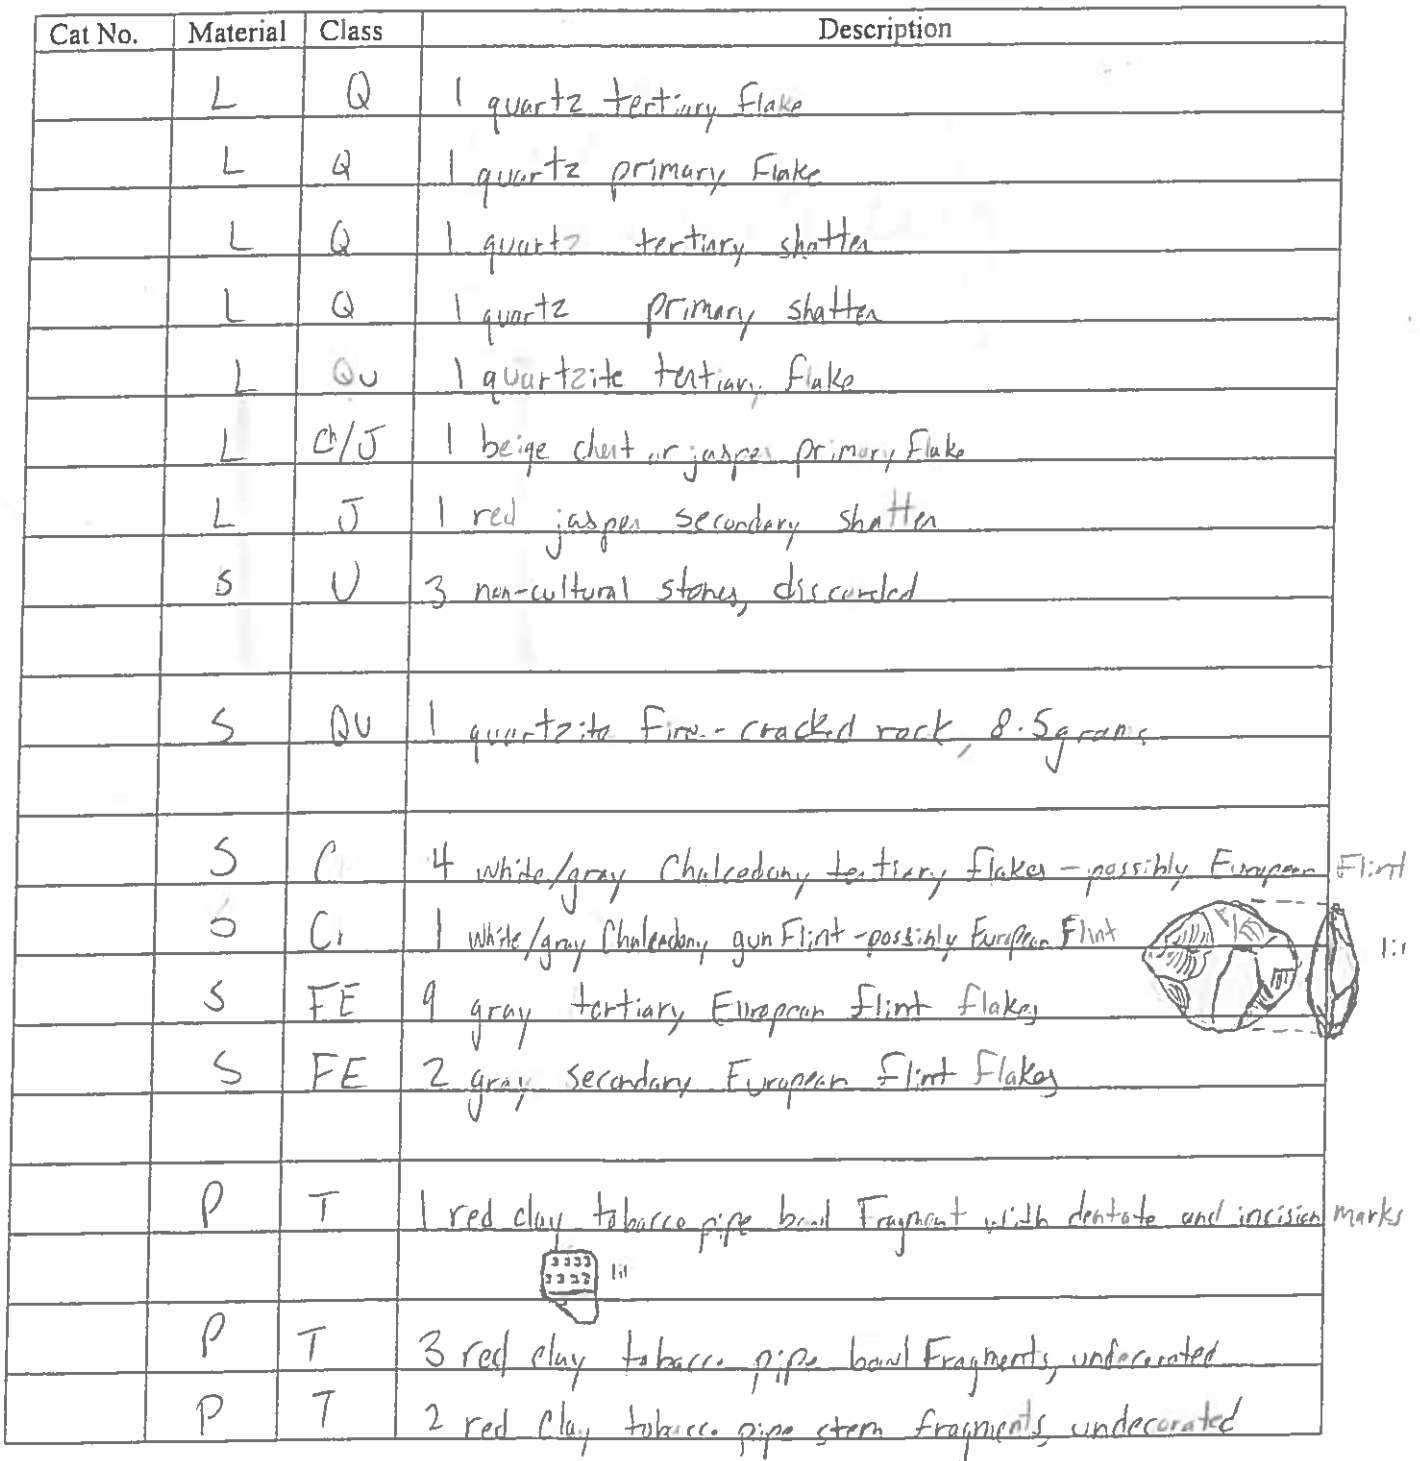 Cat No. Material Class Description
L Q 1 quartz tertiary flake
L Q 1 quartz primary Flake
L Q 1 quartz tertiary shatter
L Q 1 quartz primary shatter
L QU 1 quartzite tertiary flake
L Ch/J 1 beige chert or jasper primary Flake
L J 1 red jasper secondary shatter
S U 3 non-cultural stones, discarded
S QU 1 quartzite Fire-cracked rock, 8.5grams
S C 4 white/gray Chalcedony tertiary flakes - possibly European Flint
S C 1 white/gray Chalcedony gun Flint - possibly European Flint 1:1
S FE 9 gray tertiary European flint flakes
S FE 2 gray secondary European flint Flakes
P T 1 red clay tobacco pipe bowl Fragment with dentate and incision marks
1:1
P T 3 red clay tobacco pipe bowl Fragments, undecorated
P T 2 red Clay tobacco pipe stem fragments, undecorated